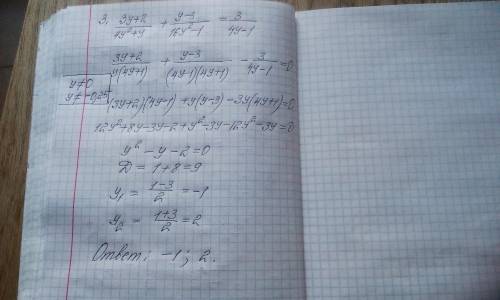 3. (3y+2)/(4y²+y) + (y-3)/(16y²-1) = 3/(4y-1)
(3y+2)/(y(4y+1)) + (y-3)/((4y-1)(4y+1)) - 3/(4y-1) = 0
y≠0
y≠-0,25
(3y+2)(4y-1)+y(y-3)-3y(4y+1)=0
12y²+8y-3y-2+y²-3y-12y²-3y=0
y²-y-2=0
D=1+8=9
y₁ = (1-3)/2 = -1
y₂ = (1+3)/2 = 2
Ответ: -1; 2.